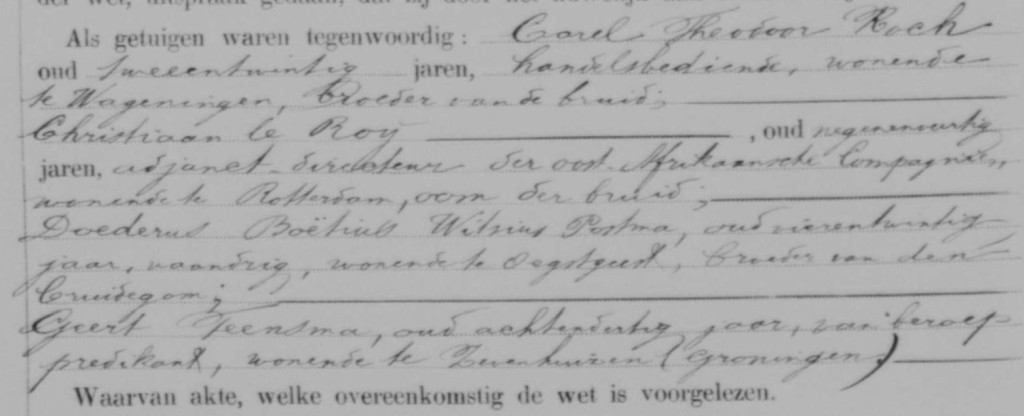 Als getuigen waren tegenwoordig: Carel Theodoor Koch
oud tweeentwintig jaren, handelsbediende, wonende
te Wageningen, broeder van de bruid;
Christiaan le Roij , oud negenenveertig
jaren, adjunct-directeur der oost-Afrikaansche Compagnie,
wonende te Rotterdam, oom der bruid;
Doederus Boëtius Witsius Postma, oud vierentwintig
jaar, vaandrig, wonende te Oegstgeest, broeder van den
bruidegom;
Geert Feensma, oud achtendertig jaar, van beroep
predikant, wonende te Zevenhuizen (Groningen)
Waarvan akte, welke overeenkomstig de wet is voorgelezen.